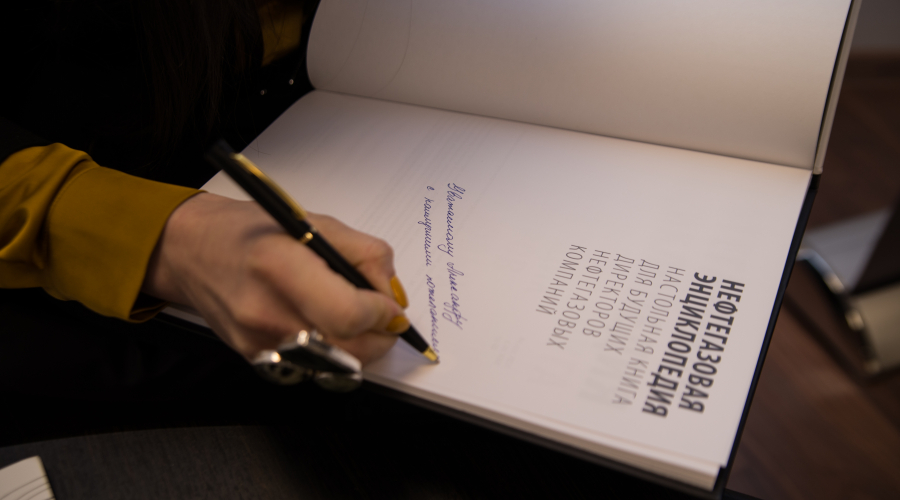 НЕФТЕГАЗОВАЯ
ЭНЦИКЛОПЕДИЯ
НАСТОЛЬНАЯ КНИГА
ДЛЯ БУДУЩИХ
ДИРЕКТОРОВ
НЕФТЕГАЗОВЫХ
КОМПАНИЙ
Уважаемому Александру
с наилучшими пожеланиями